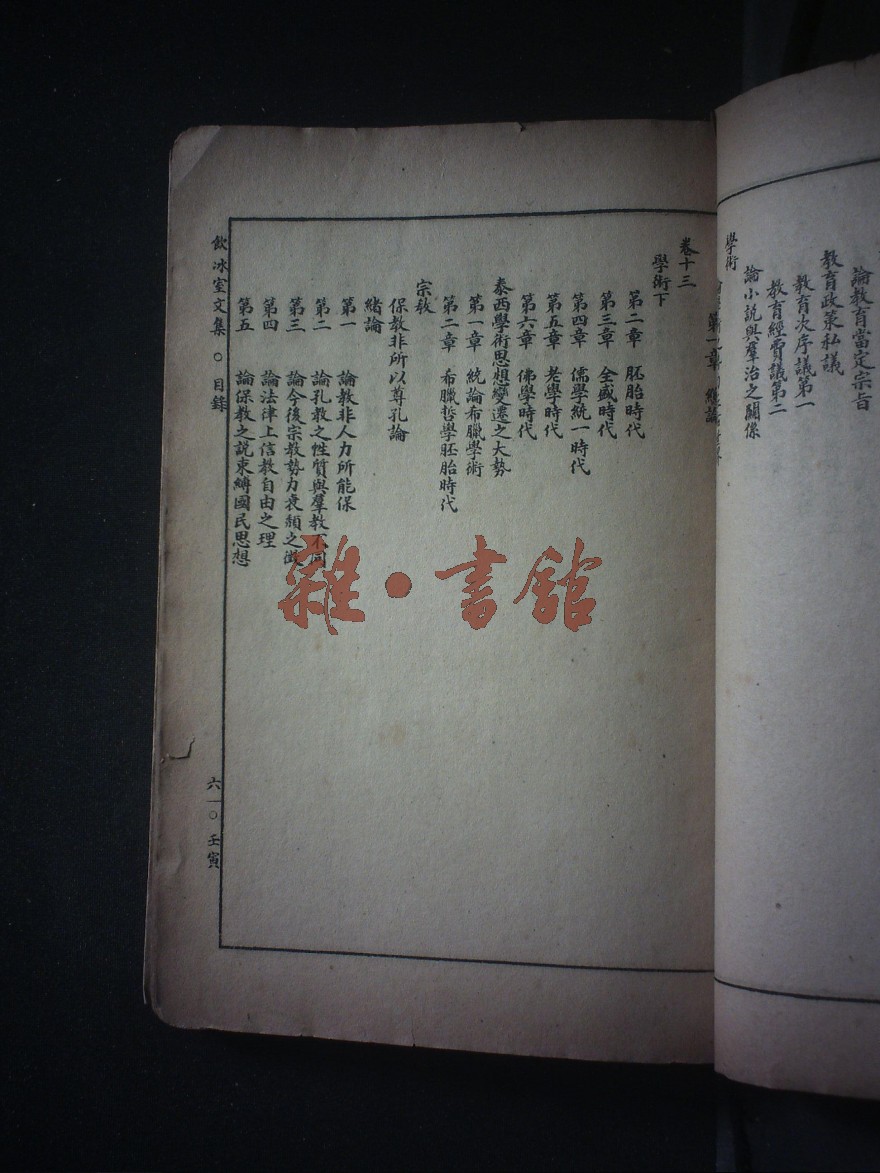 論教育當定宗旨
教育政策私議
教育次序議第一
教育經費議第二
論小說與羣治之關係
學術
卷十三
學術下
第二章　胚胎時代
第三章　全盛時代
第四章　儒學統一時代
第五章　老學時代
第六章　佛學時代
泰西學術思想變遷之大勢
第一章　統論希臘學術
第二章　希臘哲學胚胎時代
宗教
保教非所以尊孔論
緒論
第一　論教非人力所能保
第二　論孔教之性質與羣教不同
第三　論今後宗教勢力衰頹之徵
第四　論法律上信教自由之理
第五　論保教之說束縛國民思想
飲冰室文集　○　目錄　六一○　壬寅
雜·書館